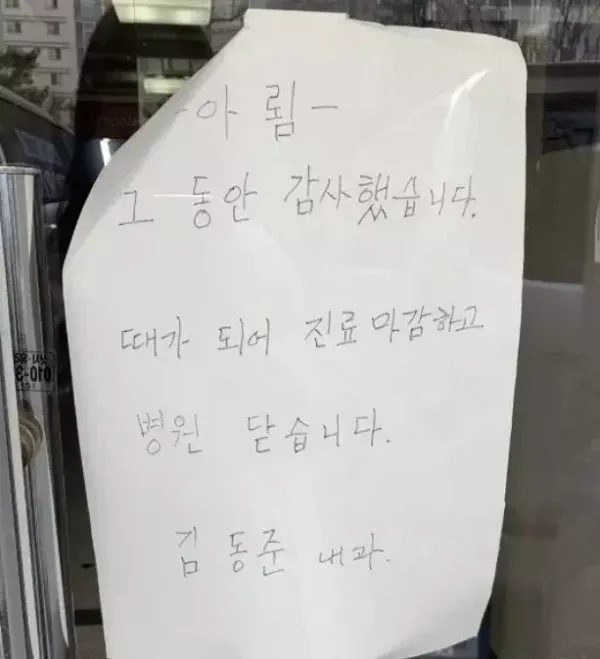 -아림-
그 동안 감사했습니다.
때가 되어 진료마감하고
병원 닫습니다.
김동준 내과.